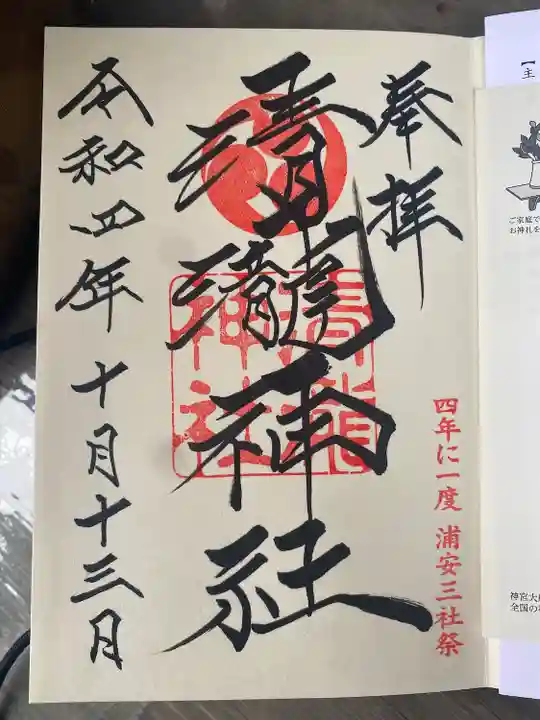 奉拝
清瀧神社
清龍
神社
四年に一度 浦安三社祭
令和四年 十月十三日
【主
ご家庭で
お神札を
神宮大
全国の